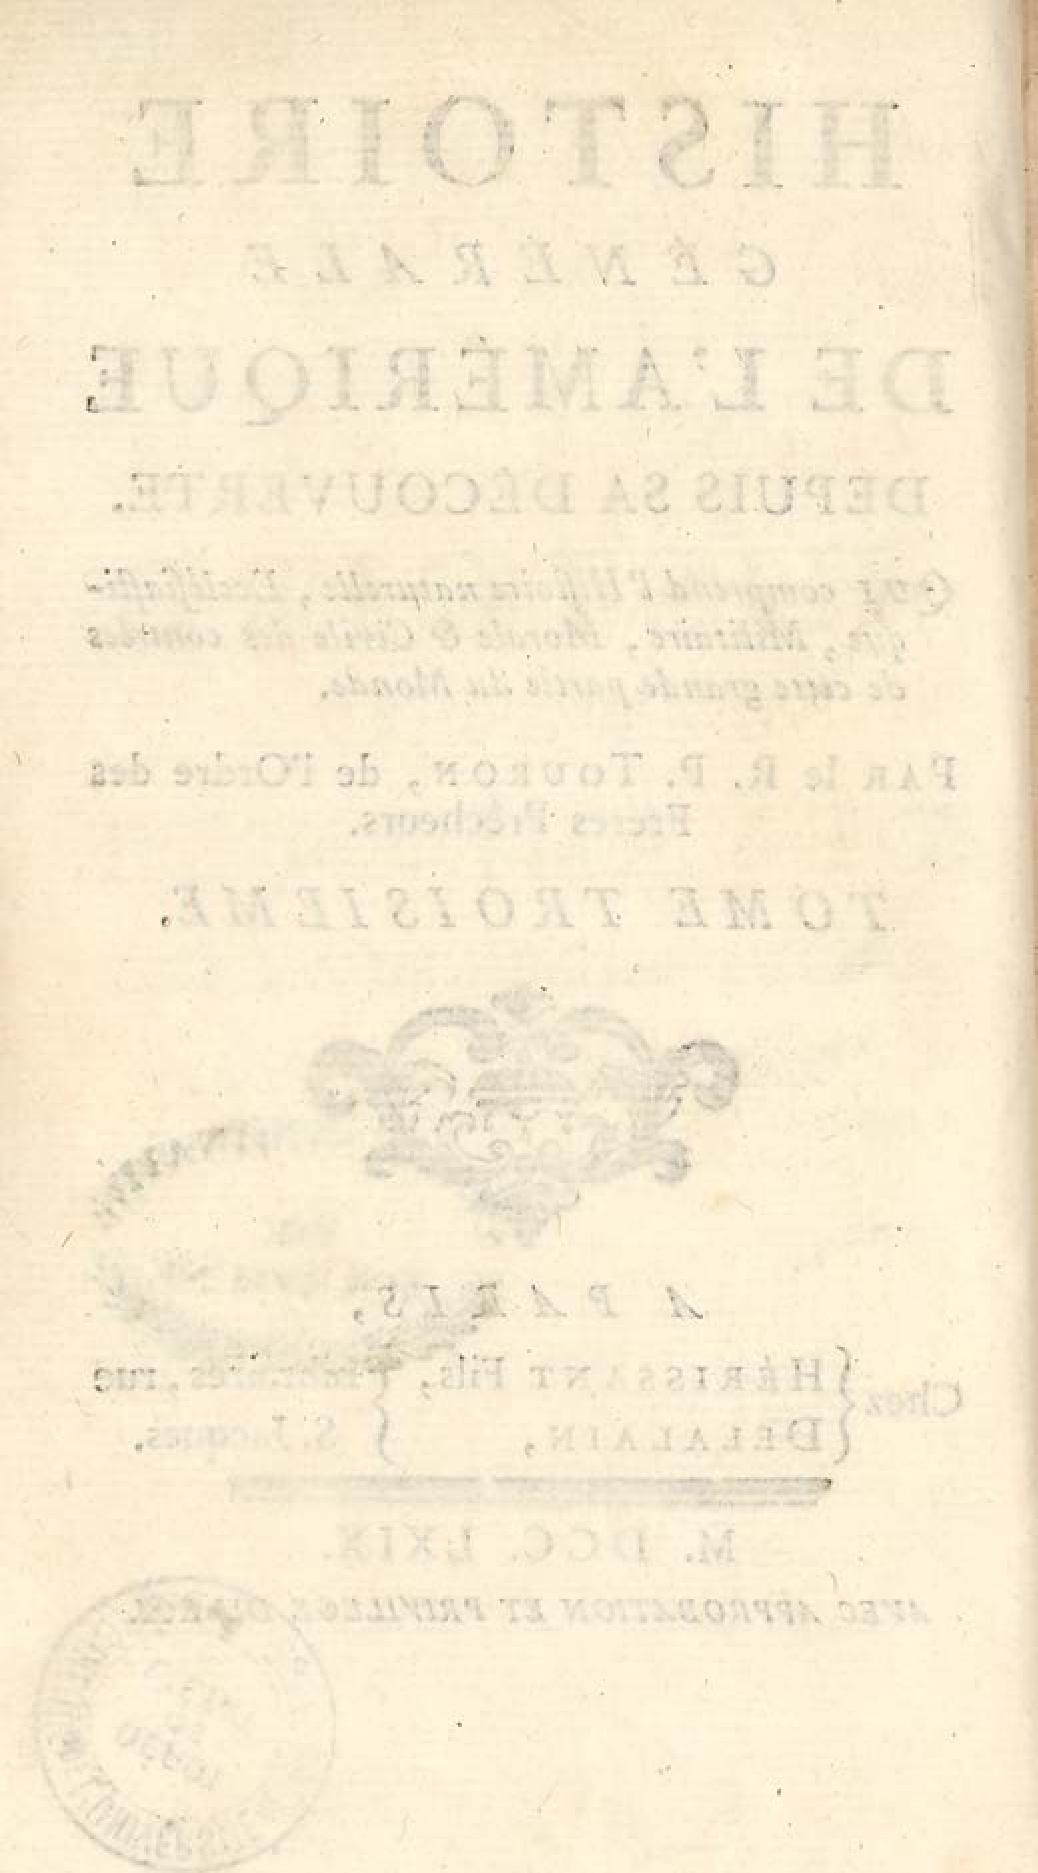 HISTOIRE
GÉNÉRALE
DE L'AMÉRIQUE
DEPUIS SA DÉCOUVERTE.
QUI comprend l'Histoire naturelle, Ecclésiasti-
que, Militaire, Morale & Civile des contrées
de cette grande partie du Monde.
PAR le R. P. TOURON, de l'Ordre des
Freres Prêcheurs.
TOME TROISIEME.
A PARIS,
Chez { HÉRISSANT Fils, } Libraires, rue
DELALAIN, } S. Jacques.
M. DCC. LXIX.
AVEC APPROBATION ET PRIVILEGE DU ROI.